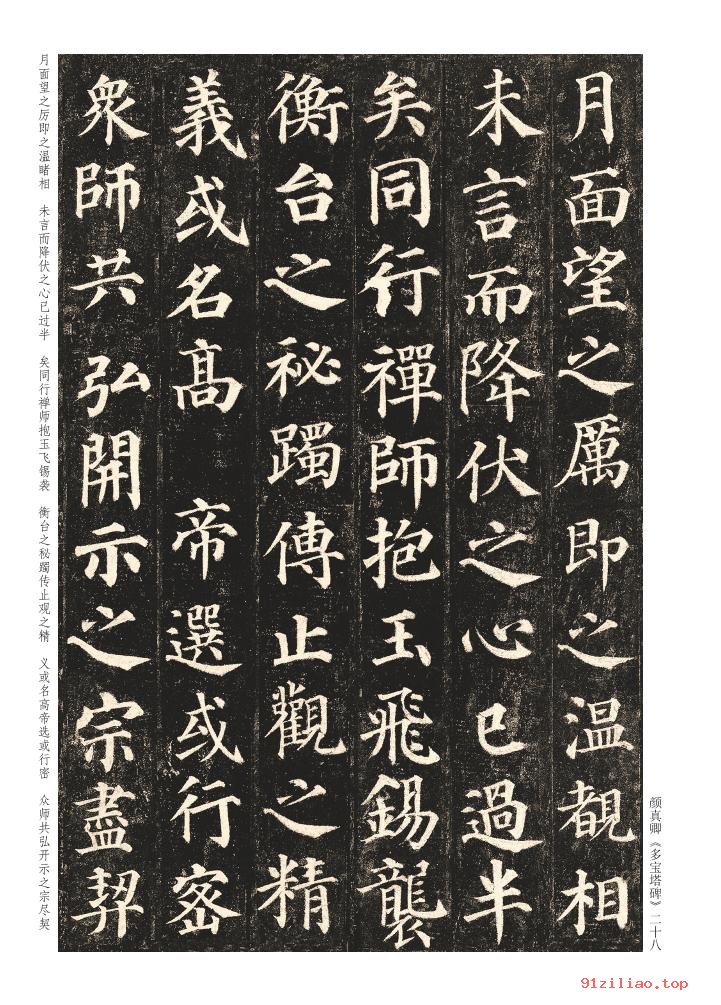 月面望之厲即之溫覩相
未言而降伏之心已過半
矣同行禪師抱玉飛錫襲
衡台之秘躅傳止觀之精
義或名高 帝選或行密
衆師共弘開示之宗盡契
月面望之厉即之温睹相 未言而降伏之心已过半 矣同行禅师抱玉飞锡袭 衡台之秘躅传止观之精 义或名高帝选或行密 众师共弘开示之宗尽契
颜真卿《多宝塔碑》二十八
91ziliao.top